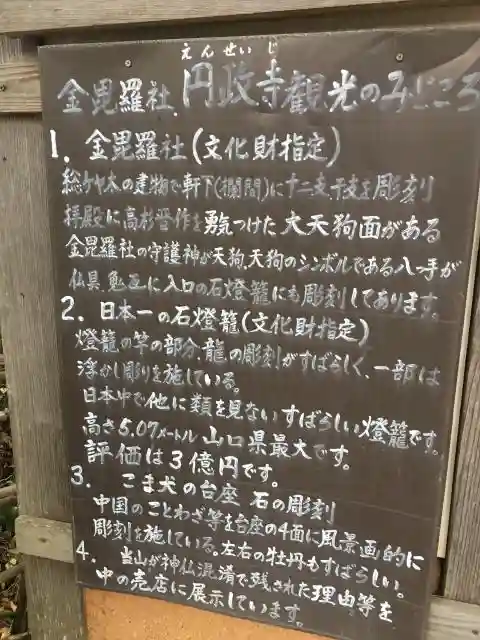 えんせいじ
金毘羅社、円政寺観光のみどころ
1. 金毘羅社(文化財指定)
総ケヤ木の建物で軒下(欄間)に十二支、干支を彫刻
拝殿に高杉晋作を勇気つけた大天狗面がある
金毘羅社の守護神が天狗、天狗のシンボルである八つ手が
仏具、鬼面に入口の石燈籠にも彫刻してあります。
2. 日本一の石燈籠(文化財指定)
燈籠の竿の部分、龍の彫刻がすばらしく、一部は
浮かし彫りを施している。
日本中で他に類を見ないすばらしい燈籠です。
高さ5.07メートル山口県最大です。
評価は3億円です。
3. こま犬の台座 石の彫刻
中国のことわざ等を台座の4面に風景画的に
彫刻を施している。左右の牡丹もすばらしい。
4. 当山が神仏混淆で残された理由等を
中の売店に展示しています。